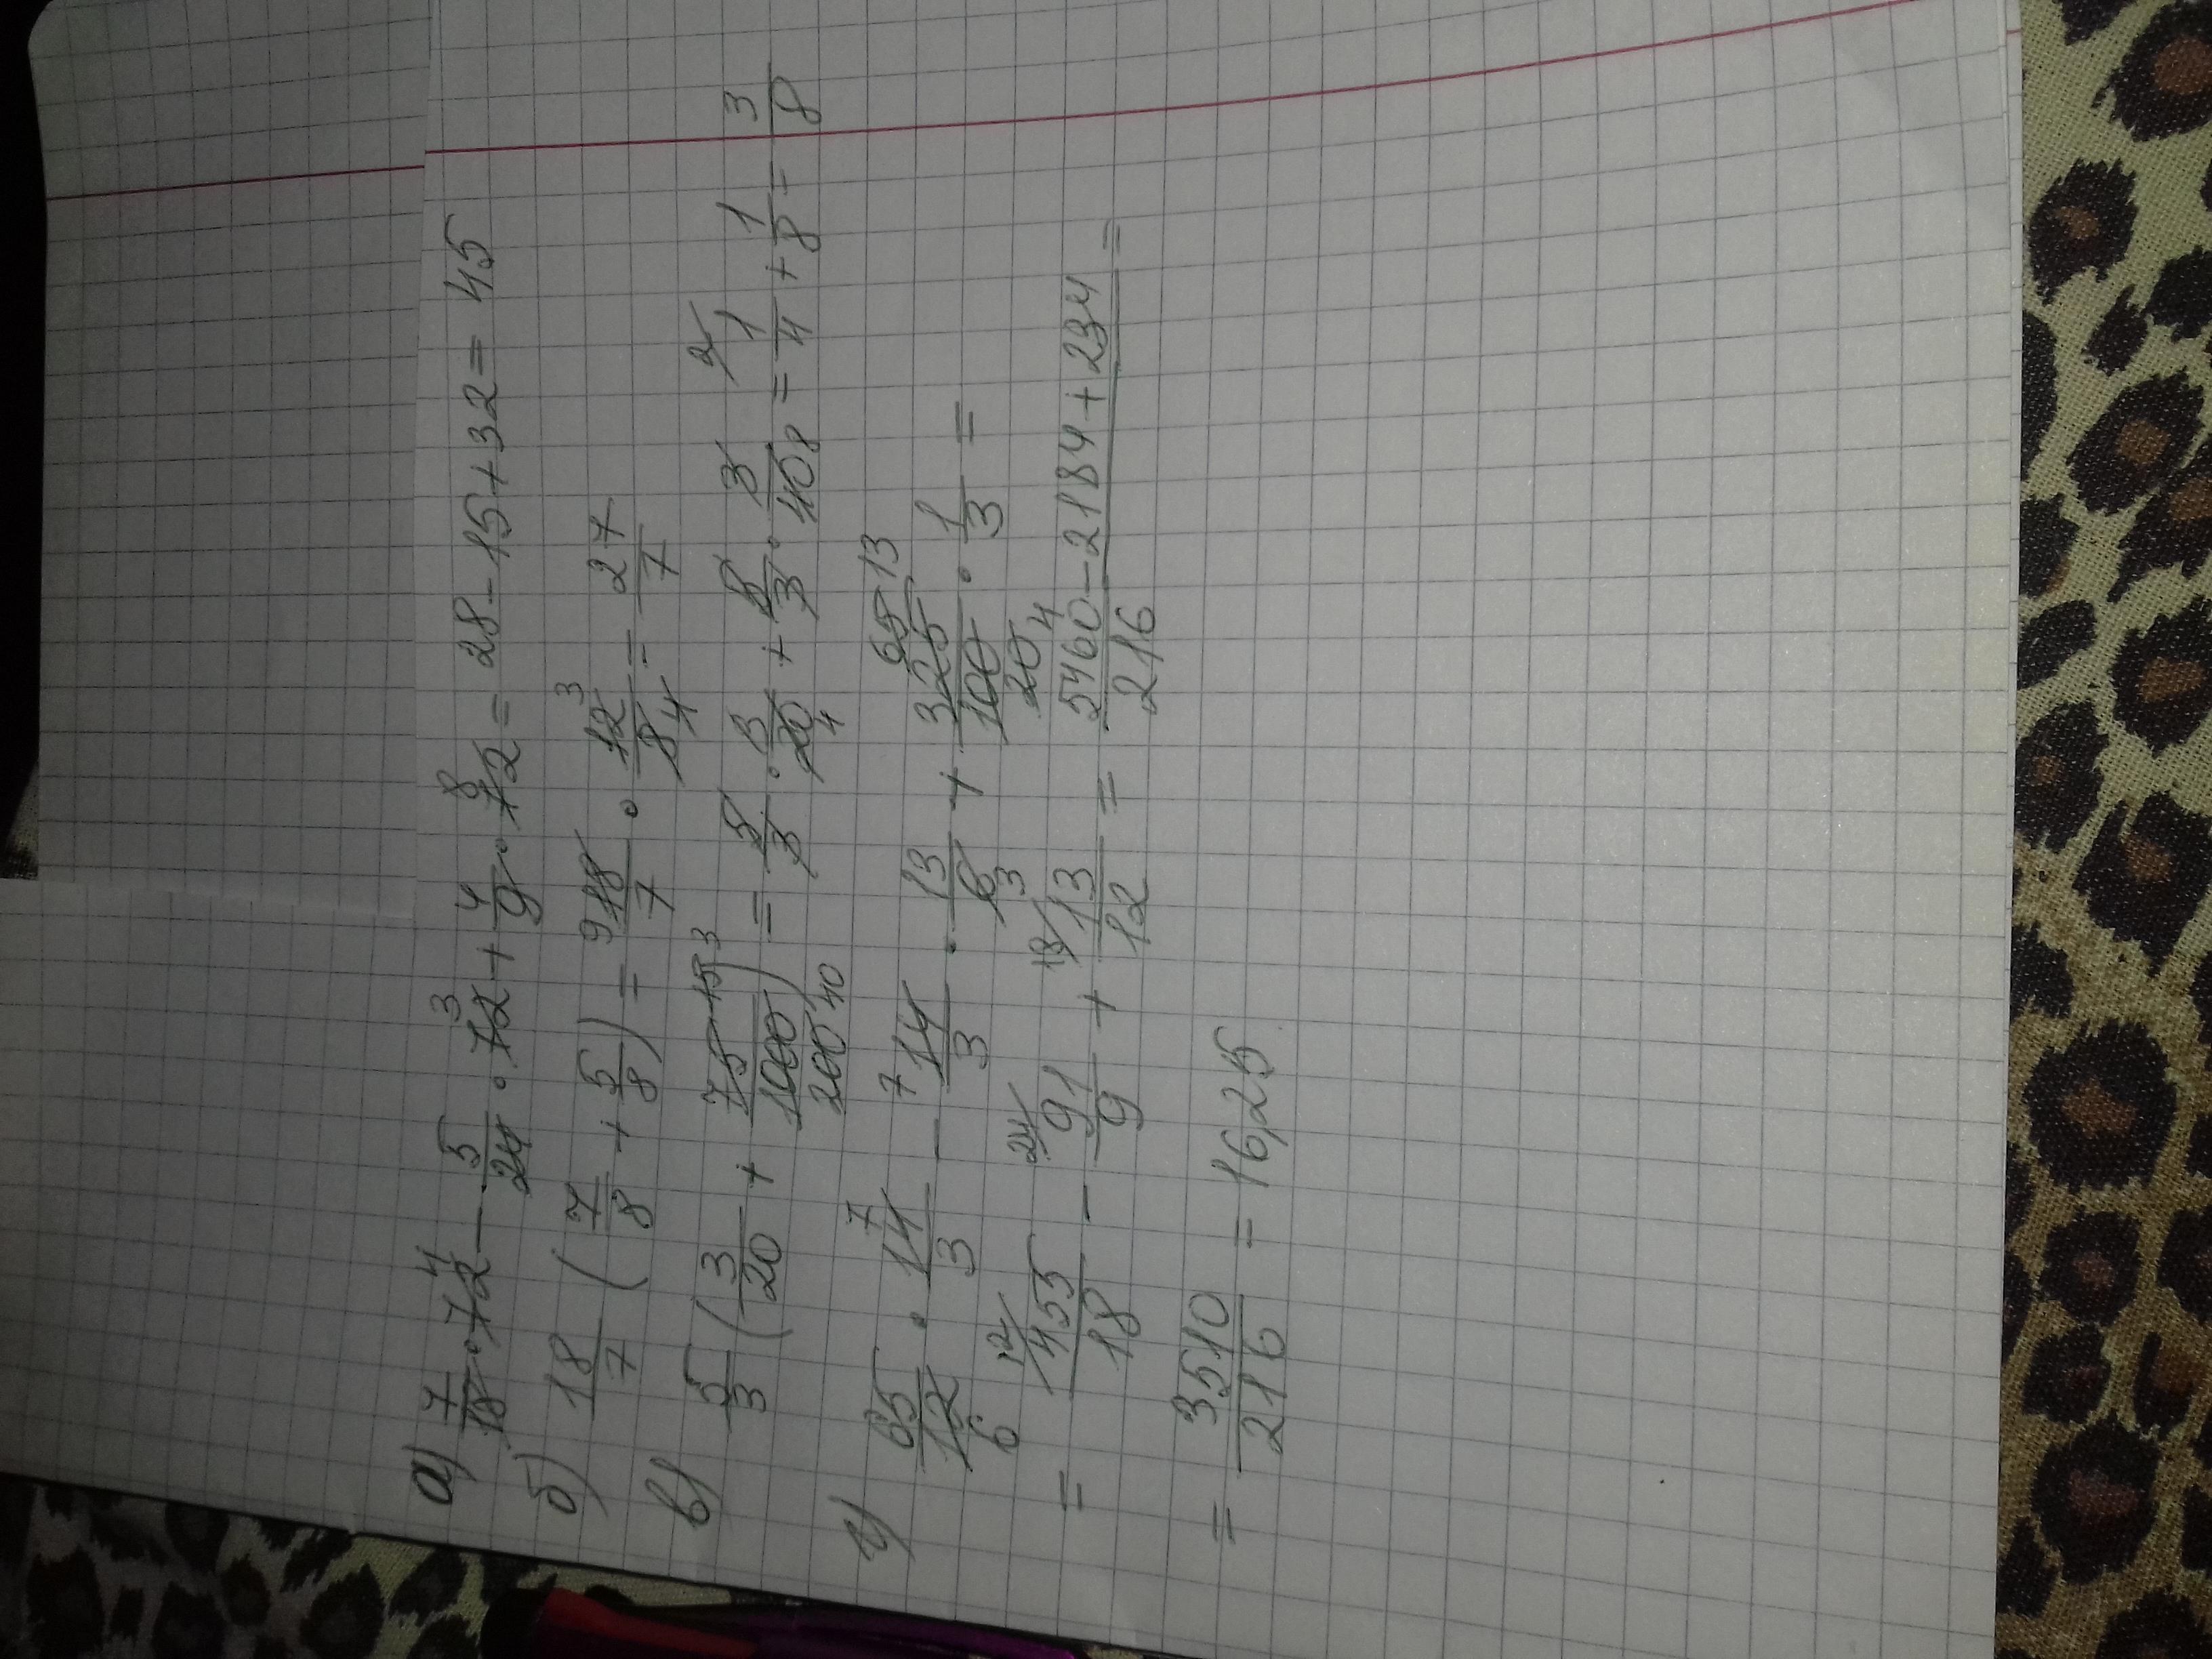 а) 7/18 · 72 4 − 5/24 · 72 3 + 4/9 · 72 8 = 28 − 15 + 32 = 45
б) 18/7 (7/8 + 5/8) = 9 18/7 · 12 3/8 4 = 27/7
в) 5/3 (3/20 + 75 15 3/1000 200 40) = 5/3 · 3/20 4 + 5/3 · 3/40 8 = 2 1/4 + 1/8 = 3/8
г) 65/12 6 · 14 7/3 − 7 14/3 · 13/6 3 + 325 65 13/100 20 4 · 1/3 =
= 12 455/18 − 24 91/9 + 18 13/12 = 5460 − 2184 + 234/216 =
= 3510/216 = 16,25